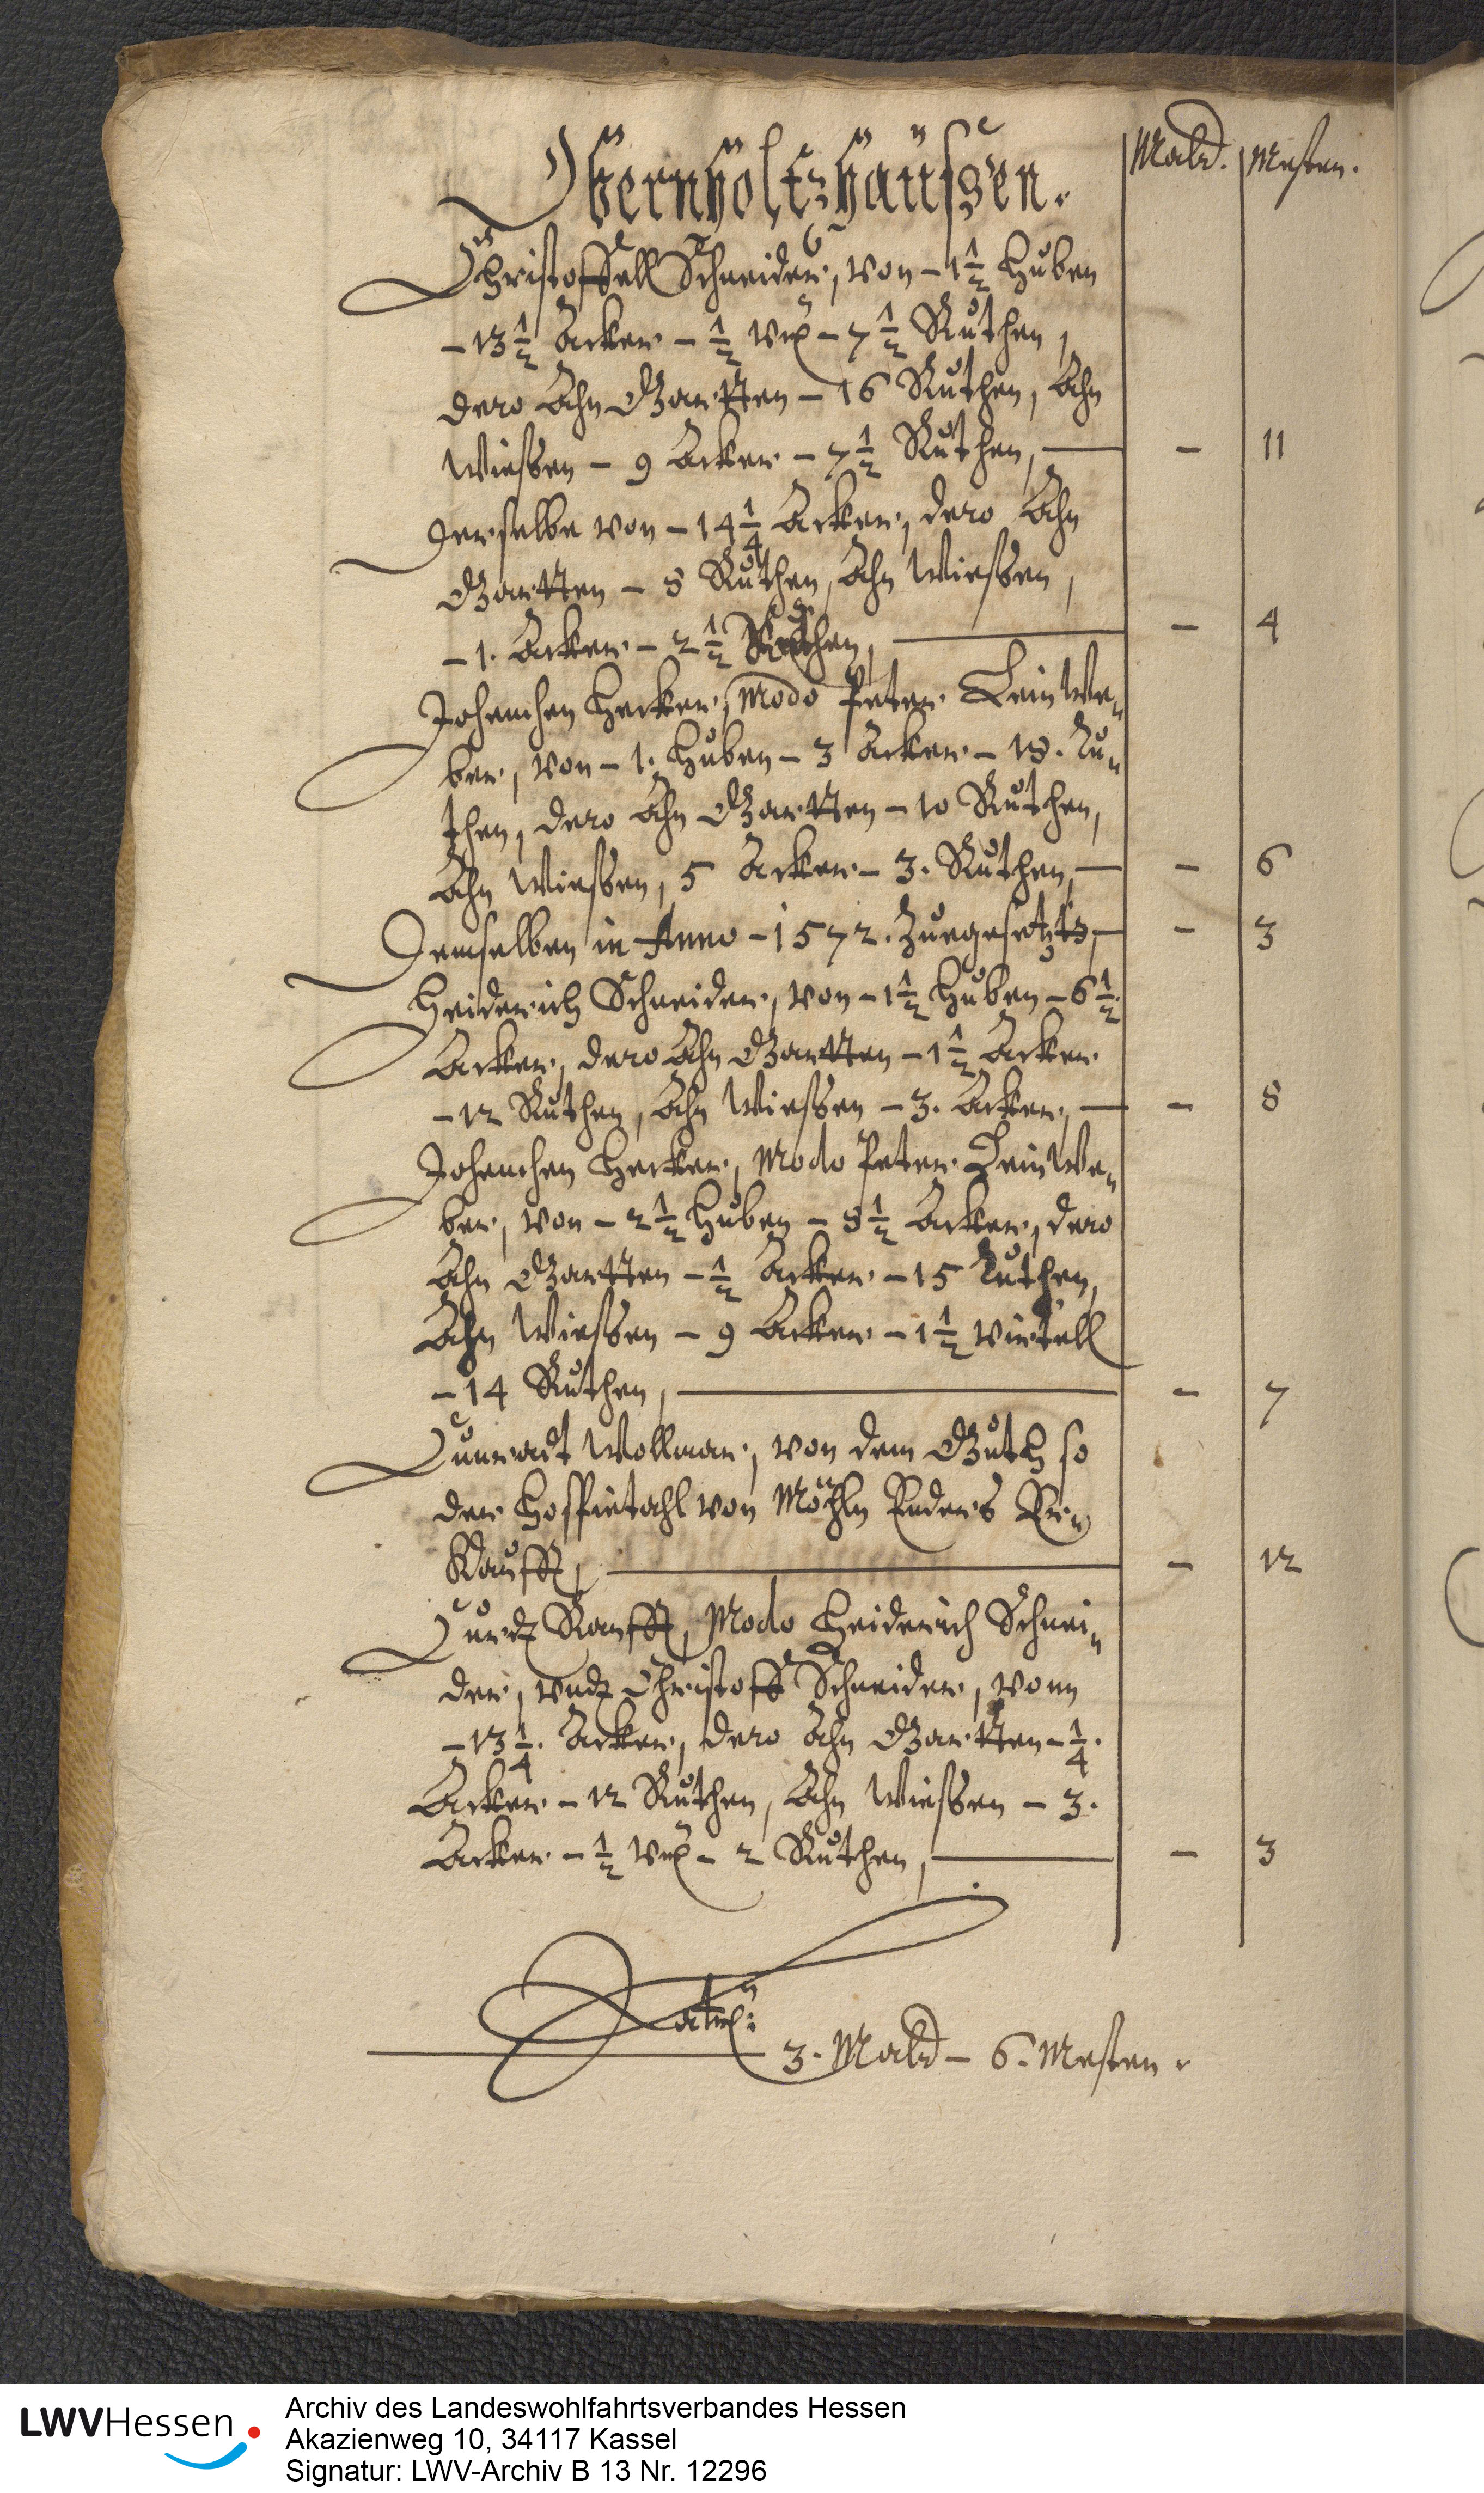 Obernholtzhaüßen. Mald. Mesten.
Christoffell Schneider, von - 1 1/2 Huben
- 13 1/2 Acker - 1/2 - 7 1/2 Ruthen,
dero Ahn Gartten - 16 Ruthen, Ahn
Wießen - 9 Acker - 7 1/2 Ruthen, - 11
Derselbe von - 14 1/4 Acker, dero Ahn
Gartten - 8 Ruthen, Ahn Wießen,
- 1. Acker - 2 1/2 Ruthen, - 4
Johenchen Hecker, Modo Peter Leinwe„
ber, von - 1. Huben - 3 Acker - 18. Ru„
then, dero Ahn Gartten - 10 Ruthen,
Ahn Wießen, 5 Acker - 3. Ruthen, - 6
Demselben in Anno - 1572. Zuegesetzts, - 3
Heiderich Schneider, von - 1 1/2 Huben - 6 1/2.
Acker, dero Ahn Gartten - 1 1/2 Acker
- 12 Ruthen, Ahn Wießen - 3. Acker, - 8
Johenchen Hecker, Modo Peter Leinwe„
ber, von - 2 1/2 Huben - 8 1/2 Acker, dero
Ahn Gartten - 1/2 Acker - 15 Ruthen,
Ahn Wießen - 9 Acker - 1 1/2 virtell
- 14 Ruthen, - 7
Cunradt Wollmar, von dem Guth so
der Hospietahl von Möhln Enders Er„
Kaufft, - 12
Curdt Ranfft, Modo Heiderich Schnei„
der, undt Christoff Schneider, vonn
- 13 1/4. Acker, dero Ahn Gartten - 1/4.
Acker - 12 Ruthen, Ahn Wießen - 3.
Acker - 1/2 - 2 Ruthen, - 3
3. Mald - 6. Mesten.
LWVHessen
Archiv des Landeswohlfahrtsverbandes Hessen
Akazienweg 10, 34117 Kassel
Signatur: LWV-Archiv B 13 Nr. 12296